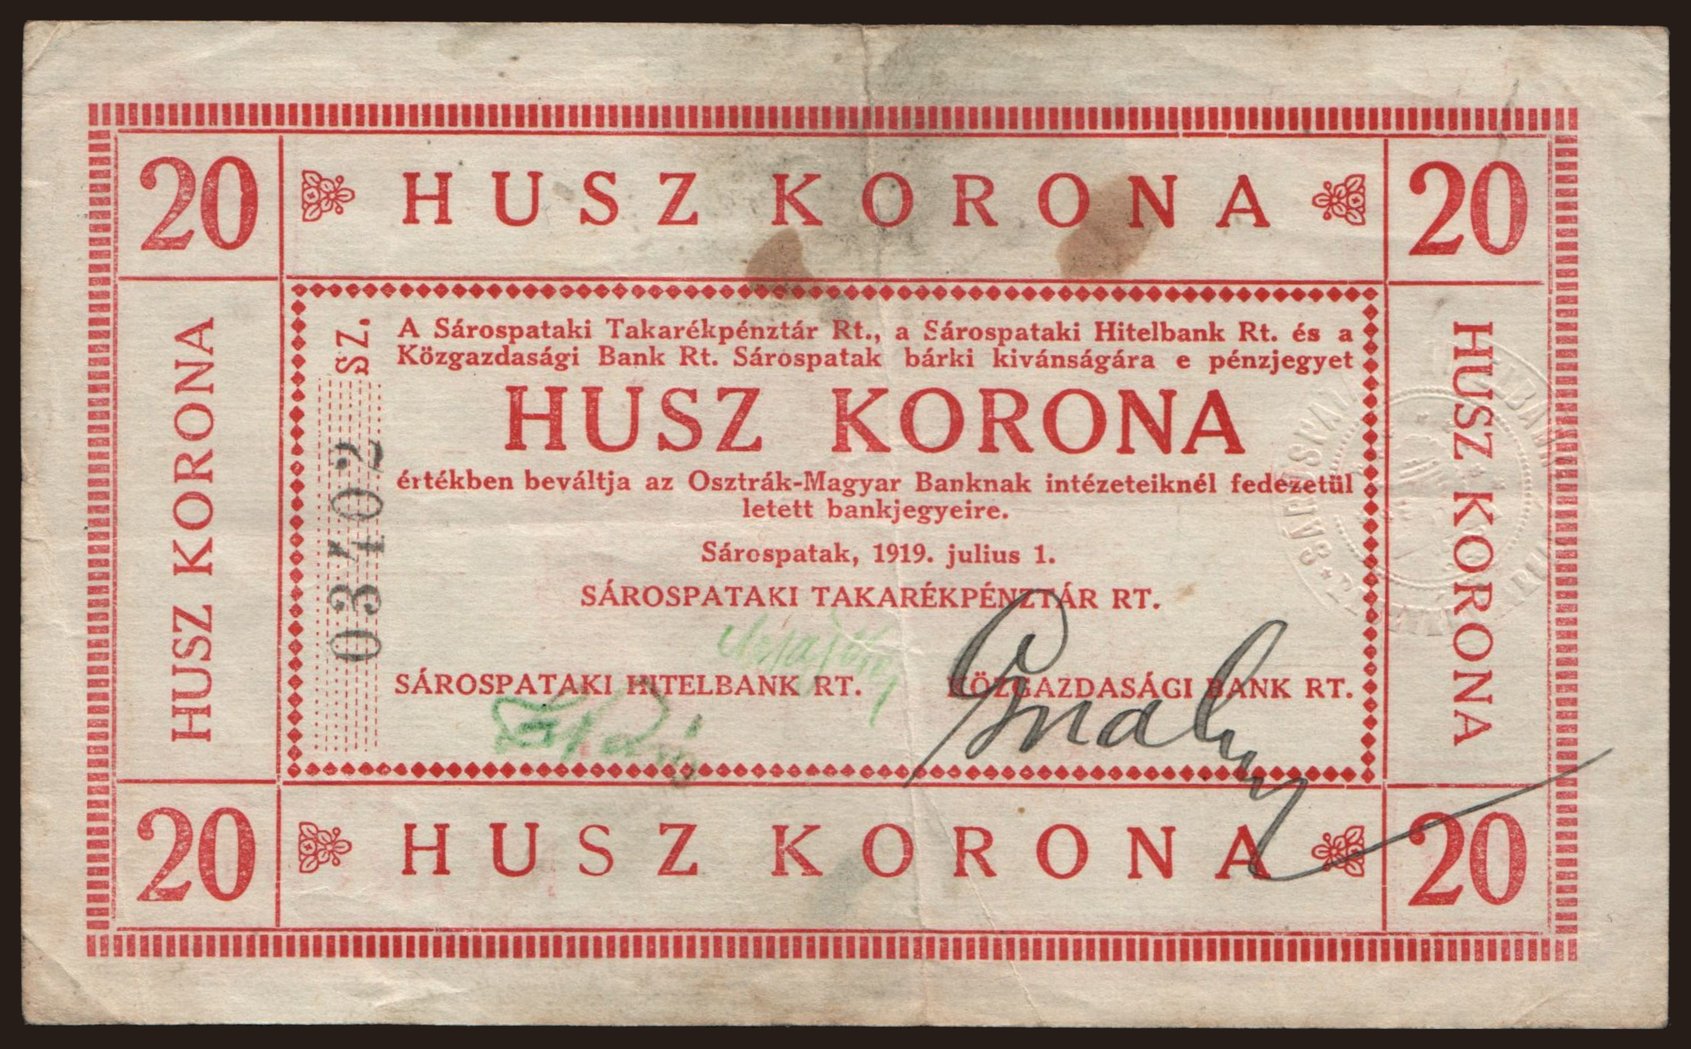 20 HUSZ KORONA 20
HUSZ KORONA
SZ.
03402
A Sárospataki Takarékpénztár Rt., a Sárospataki Hitelbank Rt. és a
Közgazdasági Bank Rt. Sárospatak bárki kivánságára e pénzjegyet
HUSZ KORONA
értékben beváltja az Osztrák-Magyar Banknak intézeteiknél fedezetül
letett bankjegyeire.
Sárospatak, 1919. julius 1.
SÁROSPATAKI TAKARÉKPÉNZTÁR RT.
SÁROSPATAKI HITELBANK RT. KÖZGAZDASÁGI BANK RT.
HUSZ KORONA
20 HUSZ KORONA 20